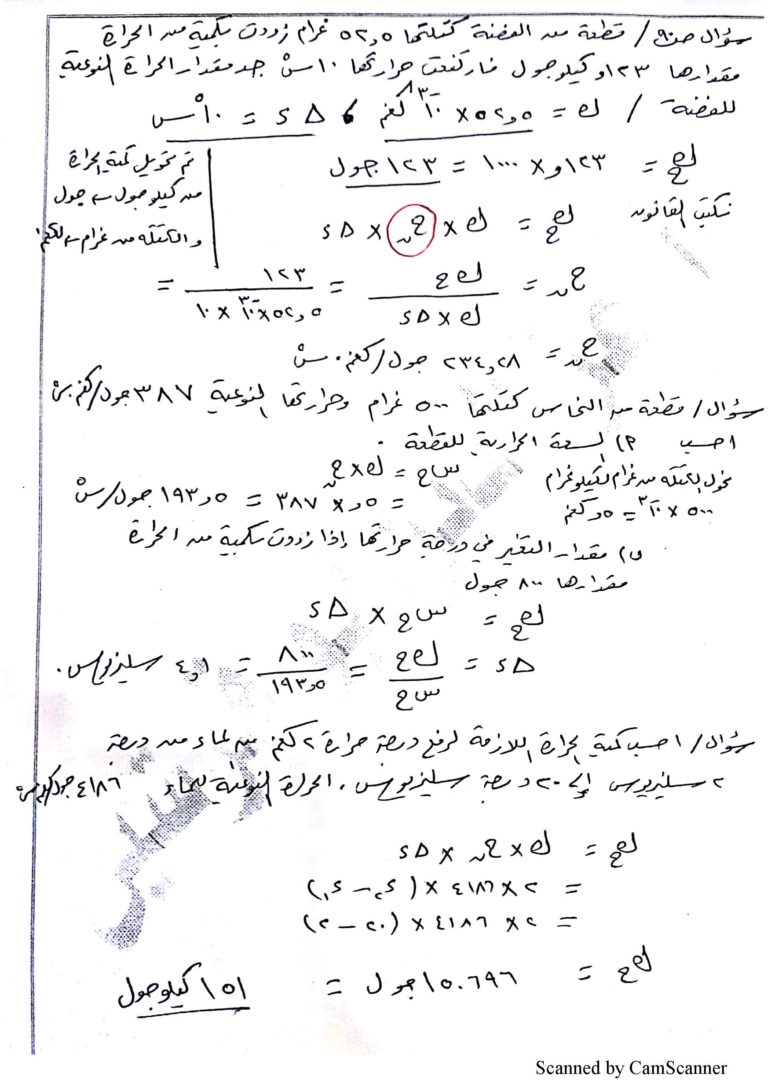 سؤال ص٩٠/ قطعة من الفضة كتلتها ٥٢,٥ غرام زودت بكمية من الحرارة
مقدارها ١٢٣و كيلوجول فارتفعت حرارتها ١٠ سْ جد مقدار الحرارة النوعية
للفضة / ك = ٥٢,٥ × ١٠⁻³ كغم ، Δ د = ١٠ سْ
كح = ١٢٣و × ١٠٠٠ = ١٢٣ جول
تم تحويل كمية الحرارة
من كيلوجول ← جول
والكتلة من غرام ← كغم
نكتب القانون كح = ك × حن × Δ د
حن = كح / ك × Δ د = ١٢٣ / ٥٢,٥ × ١٠⁻³ × ١٠ =
حن = ٢٣٤,٢٨ جول/كغم . سْ
سؤال/ قطعة من النحاس كتلتها ٥٠٠ غرام وحرارتها النوعية ٣٨٧ جول/كغم.سْ
احسب أ) السعة الحرارية للقطعة .
سح = ك × حن
نحول الكتلة من غرام لكيلوغرام
= ٥,و × ٣٨٧ = ١٩٣,٥ جول/سْ
٥٠٠ × ١٠⁻³ = ٥,و كغم
ب) مقدار التغير في درجة حرارتها إذا زودت بكمية من الحرارة
مقدارها ٨٠٠ جول
كح = سح × Δ د
Δ د = كح / سح = ٨٠٠ / ١٩٣,٥ = ٤,١ سليزيوس .
سؤال/ احسب كمية الحرارة اللازمة لرفع درجة حرارة ٢ كغم من لماء من درجة
٢ سليزيوس إلى ٢٠ درجة سليزيوس . الحرارة النوعية للماء ٤١٨٦ جول/كغم.سْ
كح = ك × حن × Δ د
= ٢ × ٤١٨٦ × (د٢ - د١)
= ٢ × ٤١٨٦ × (٢٠ - ٢)
كح = ١٥٠٦٩٦ جول = ١٥١ كيلوجول
Scanned by CamScanner